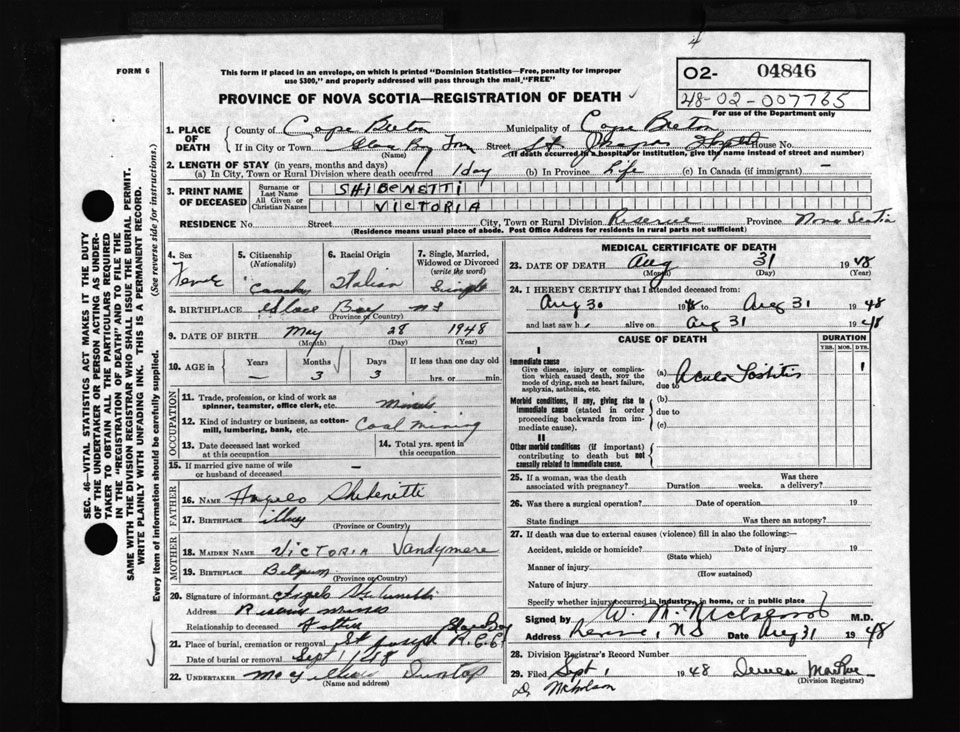 4
FORM 6
This form if placed in an envelope, on which is printed "Dominion Statistics—Free, penalty for improper
use $300," and properly addressed will pass through the mail "FREE"
O2- 04846
48-02-007765
For use of the Department only
PROVINCE OF NOVA SCOTIA—REGISTRATION OF DEATH
1. PLACE OF DEATH
County of Cape Breton Municipality of Cape Breton
If in City or Town Glace Bay Town Street St. House No.
(Name) (If death occurred in a hospital or institution, give the name instead of street and number)
2. LENGTH OF STAY (in years, months and days)
(a) In City, Town or Rural Division where death occurred 1 day (b) In Province Life (c) In Canada (if immigrant) —
3. PRINT NAME OF DECEASED
Surname or Last Name SHIBENETTI
All Given or Christian Names VICTORIA
RESIDENCE No. Street City, Town or Rural Division Reserve Province Nova Scotia
(Residence means usual place of abode. Post Office Address for residents in rural parts not sufficient)
4. Sex
5. Citizenship (Nationality)
6. Racial Origin Italian
7. Single, Married, Widowed or Divorced (write the word) Single
8. BIRTHPLACE Glace Bay NS
(Province or Country)
9. DATE OF BIRTH May 28 1948
(Month) (Day) (Year)
10. AGE in Years — Months 3 Days 3 If less than one day old
hrs. or min.
OCCUPATION
11. Trade, profession, or kind of work as
spinner, teamster, office clerk, etc.
12. Kind of industry or business, as cotton-
mill, lumbering, bank, etc. Coal mining
13. Date deceased last worked
at this occupation
14. Total yrs. spent in
this occupation
15. If married give name of wife
or husband of deceased —
FATHER
16. NAME Angelo Shibenetti
17. BIRTHPLACE
(Province or Country)
MOTHER
18. MAIDEN NAME VICTORIA Vandymere
19. BIRTHPLACE Belgium
(Province or Country)
20. Signature of informant Angelo
Address Reserve Mines
Relationship to deceased Father
21. Place of burial, cremation or removal St Joseph R.C. Glace Bay
Date of burial or removal Sept 1/48
22. UNDERTAKER Dunlop
(Name and address)
MEDICAL CERTIFICATE OF DEATH
23. DATE OF DEATH Aug 31 1948
(Month) (Day) (Year)
24. I HEREBY CERTIFY that I attended deceased from:
Aug 30 1948 to Aug 31 1948
and last saw h alive on Aug 31 1948
CAUSE OF DEATH DURATION
YRS. MOS. DYS.
I
Immediate cause
Give disease, injury or complica-
tion which caused death, NOT the
mode of dying, such as heart failure,
asphyxia, asthenia, etc.
(a) 1
due to
Morbid conditions, if any, giving rise to
immediate cause (stated in order
proceeding backwards from im-
mediate cause).
(b)
due to
(c)
II
Other morbid conditions (if important)
contributing to death but not
causally related to immediate cause.
25. If a woman, was the death
associated with pregnancy? Duration weeks. Was there
a delivery?
26. Was there a surgical operation? Date of operation 19
State findings Was there an autopsy?
27. If death was due to external causes (violence) fill in also the following:—
Accident, suicide or homicide? Date of injury 19
(State which)
Manner of injury
(How sustained)
Nature of injury
Specify whether injury occurred in industry, in home, or in public place
Signed by M.D.
Address Reserve, NS Date Aug 31 1948
28. Division Registrar's Record Number
29. Filed Sept 1 1948
(Division Registrar)
Dr Nicholson
SEC. 46—VITAL STATISTICS ACT MAKES IT THE DUTY
OF THE UNDERTAKER OR PERSON ACTING AS UNDER-
TAKER TO OBTAIN ALL THE PARTICULARS REQUIRED
IN THE "REGISTRATION OF DEATH" AND TO FILE THE
SAME WITH THE DIVISION REGISTRAR WHO SHALL ISSUE THE BURIAL PERMIT.
WRITE PLAINLY WITH UNFADING INK. THIS IS A PERMANENT RECORD.
Every item of information should be carefully supplied. (See reverse side for instructions.)